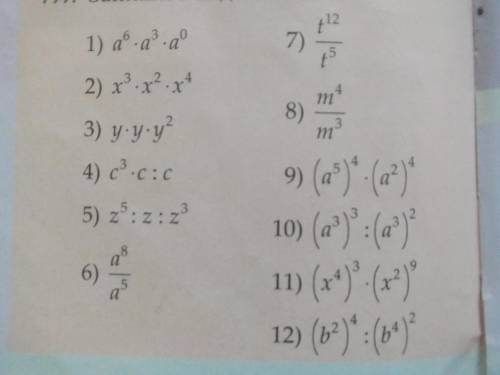 1) a⁶·a³·a⁰
2) x³·x²·x⁴
3) y·y·y²
4) c³·c : c
5) z⁵ : z : z³
6) a⁸/a⁵
7) t¹²/t⁵
8) m⁴/m³
9) (a⁵)⁴·(a²)⁴
10) (a³)³ : (a³)²
11) (x⁴)³·(x²)⁹
12) (b²)⁴ : (b⁴)²